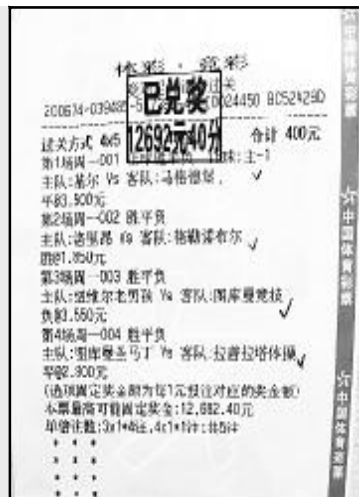 体彩·竞彩
已兑奖
12692元40分
过关方式 4x5 合计 400元
第1场周一001
主队:基尔 Vs 客队:马格德堡
平@3.500元
第2场周一002 胜平负
主队:洛里昂 Vs 客队:格勒诺布尔
胜@1.850元
第3场周一003 胜平负
主队:纽维尔老男孩 Vs 客队:图库曼竞技
负@3.550元
第4场周一004 胜平负
主队:图库曼圣马丁 Vs 客队:拉普拉塔体操
平@2.900元
(选项固定奖金额为每1元投注对应的奖金额)
本票最高可能固定奖金:12,692.40元
单倍注数:3x1*4注,4x1*1注;共5注
中国体育彩票
中国体育彩票
中国体育彩票